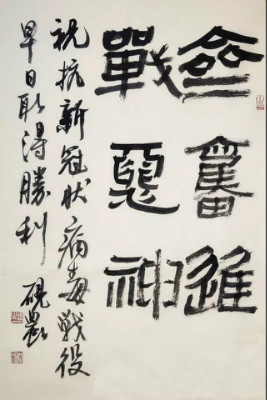 奮進
戰惡神
祝抗新冠狀病毒戰役
早日取得勝利 硯農